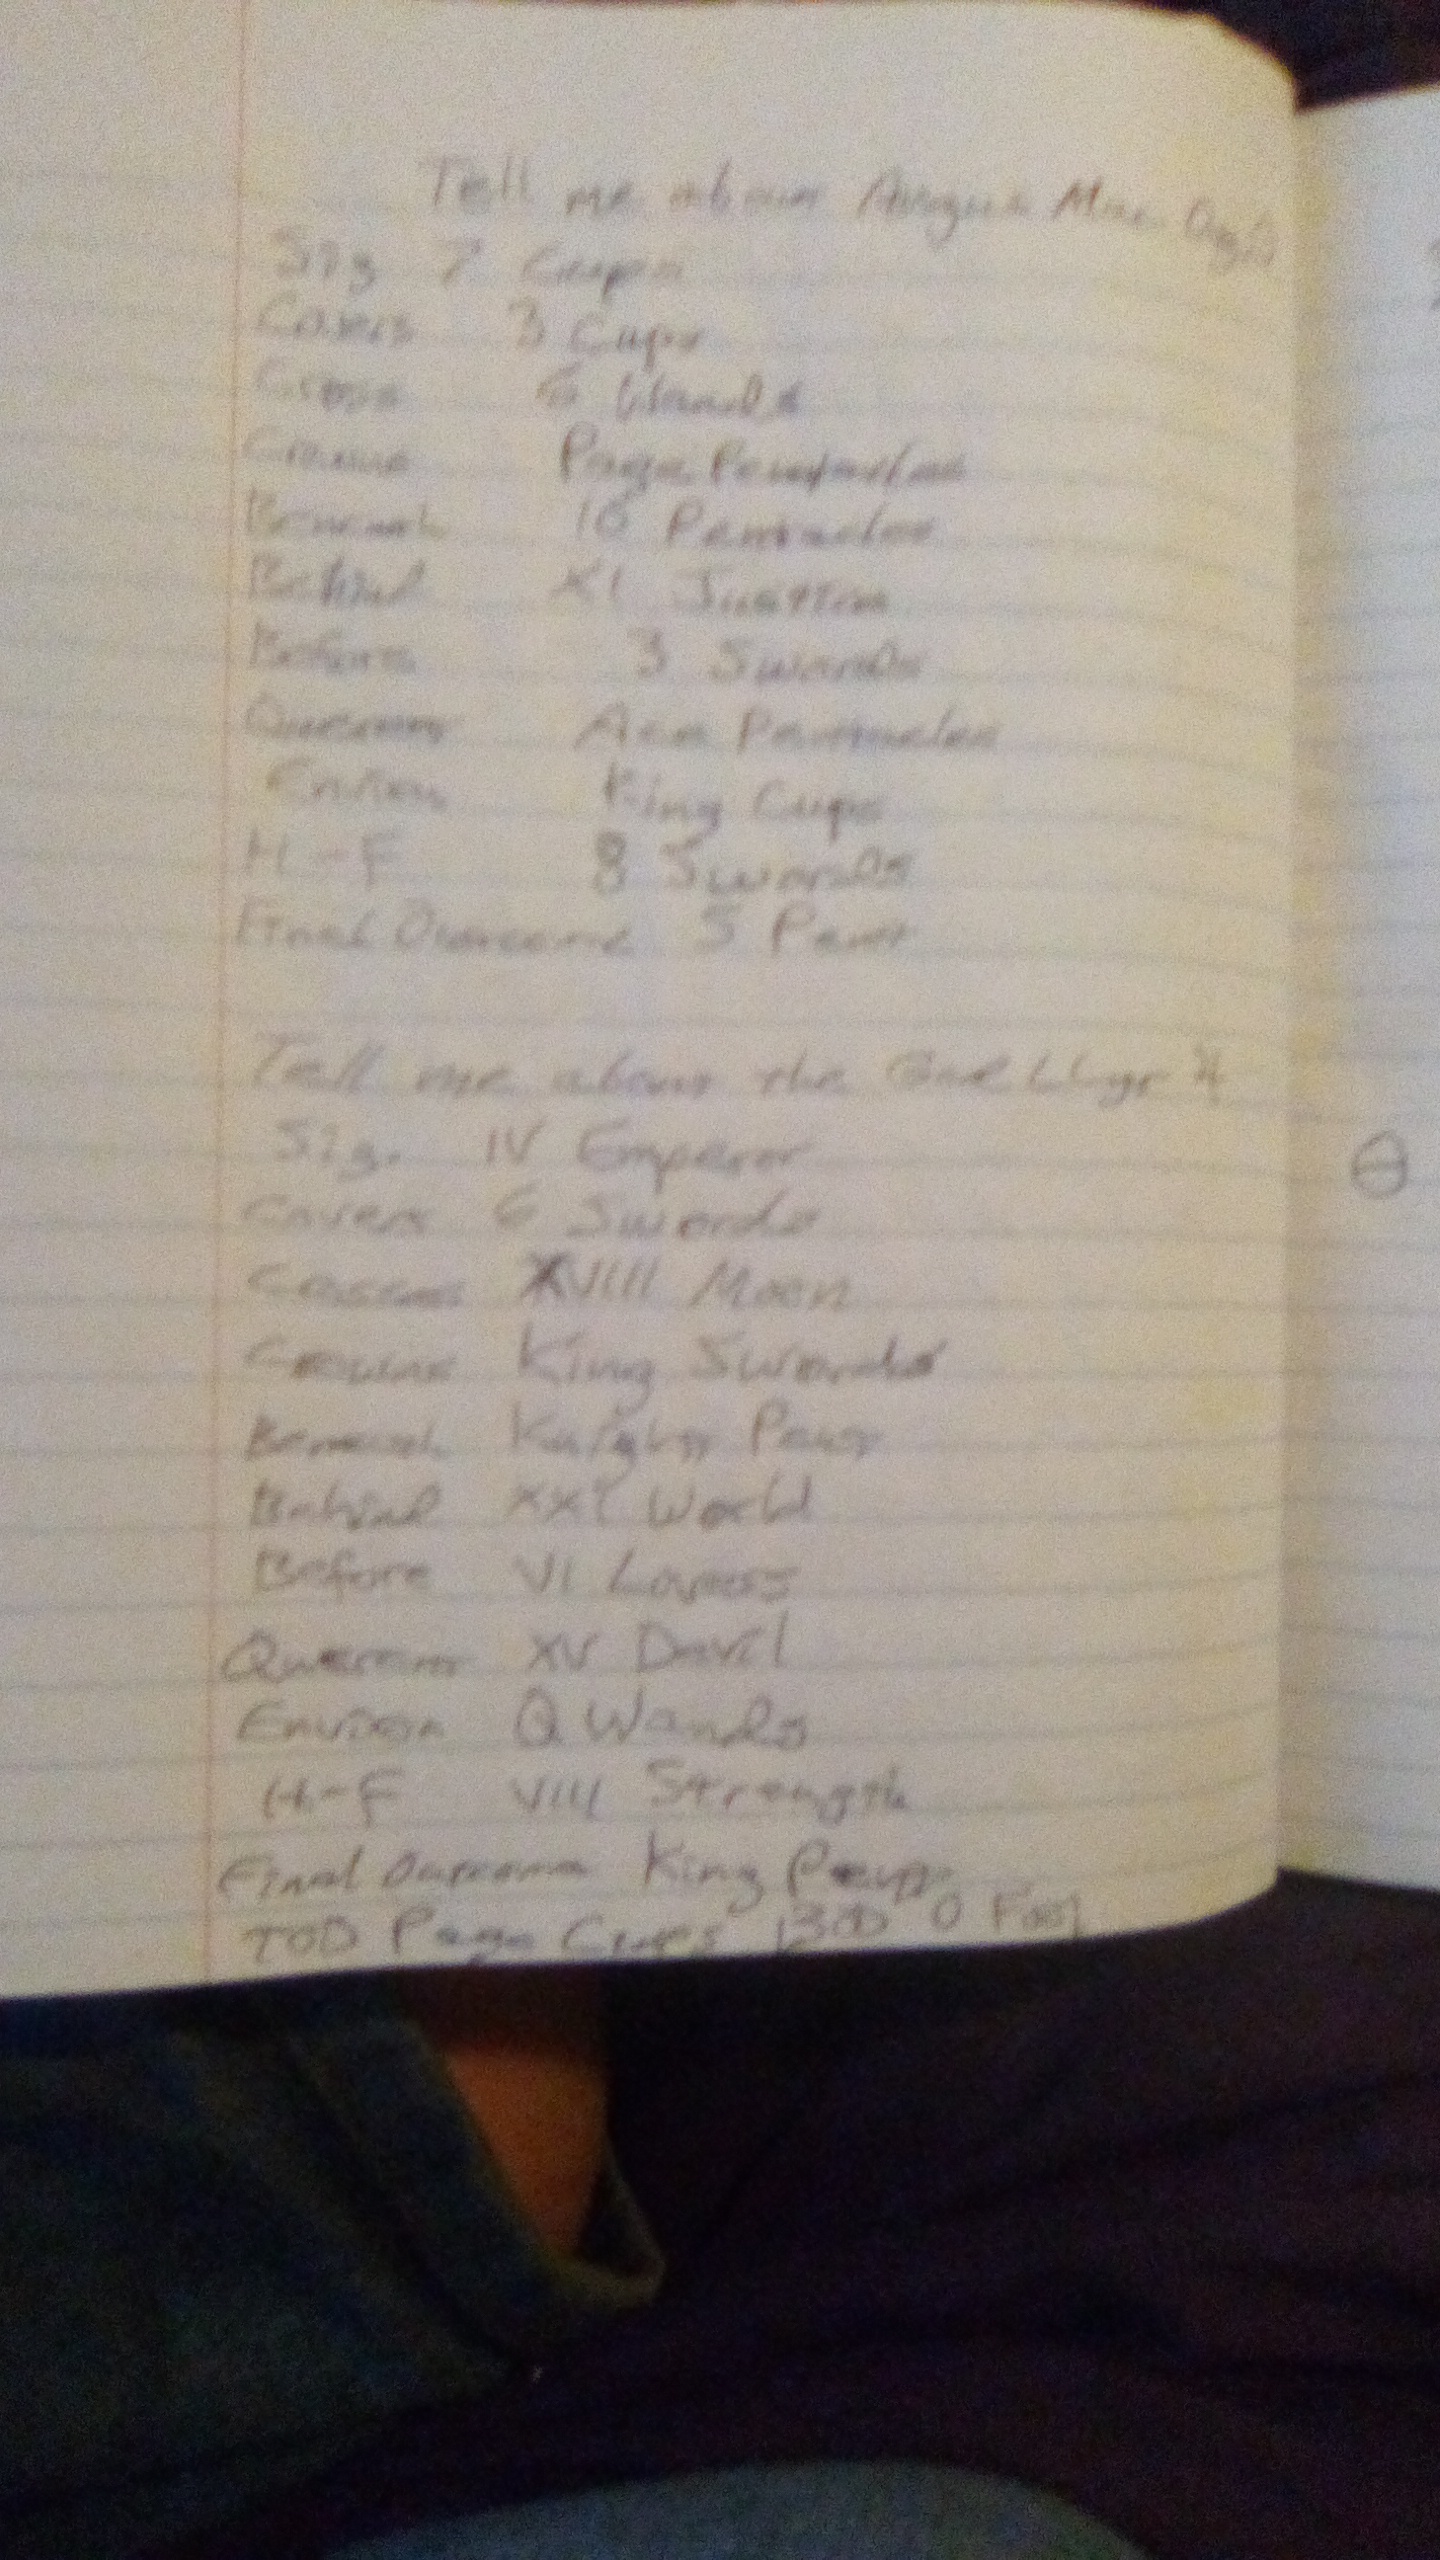 Tell me about Angus Mac Og
Sig 7 Cups
Covers 3 Cups
Cross 6 Wands
Crowns Page Pentacles
Beneath 10 Pentacles
Behind XI Justice
Before 3 Swords
Querent Ace Pentacles
Environ King Cups
H-F 8 Swords
Final Outcome 5 Pent
Tell me about the God Llyr ♃
Sig. IV Emperor
Covers 6 Swords
Crosses XVIII Moon
Crowns King Swords
Beneath Knight Pent
Behind XXI World
Before VI Lovers
Querent XV Devil
Environ Q Wands
H-F VIII Strength
Final Outcome King Pent
TOD Page Cups 0 Fool